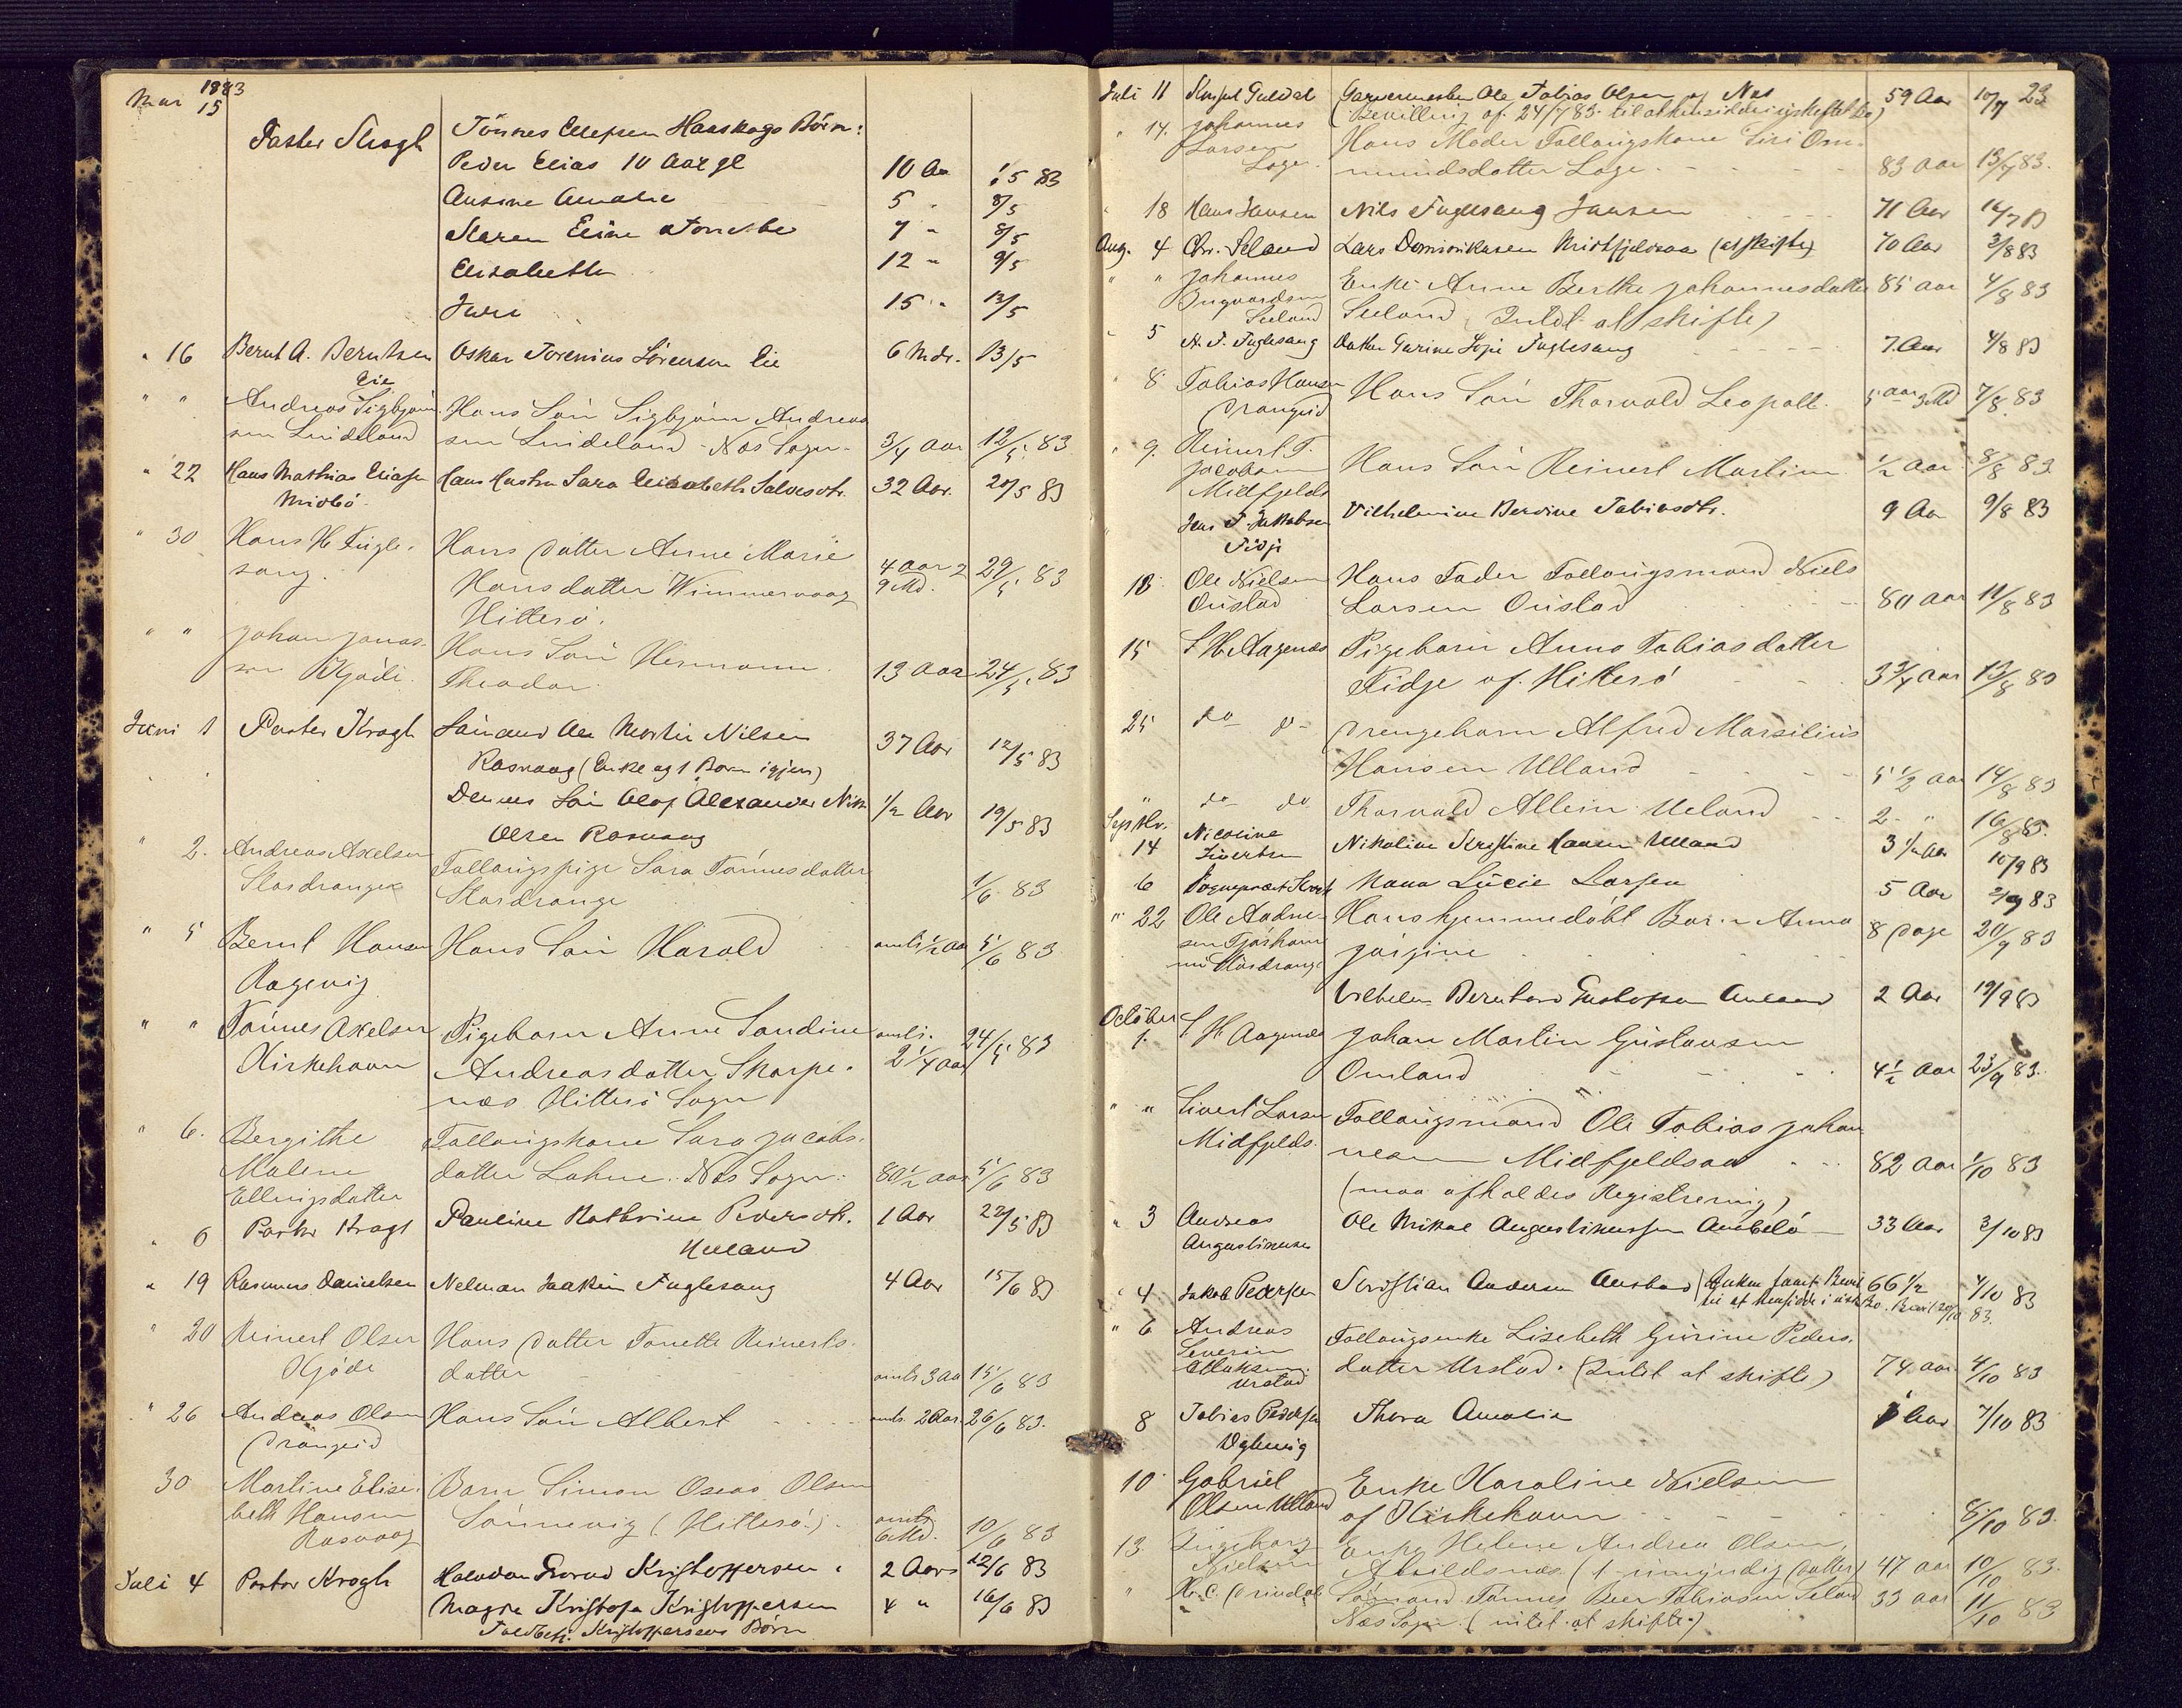 1883
Mai 15
Paster Krogh Tönnes Ellefsen Haaskogs Börn:
Peder Elias 10 Aar gl 10 Aar 1/5 83
Ansine Amalie 5 " 8/5
Maren Eline 7 " 8/5
Elisabeth 12 " 9/5
Juri 15 " 13/5
" 16 Bernt A. Berntsen Oskar Sörensen Eie 6 Mdr. 13/5
Eie
" " Andreas Sigbjörn Hans Sön Sigbjörn Andreas
sen Lindeland sen Lindeland - Næs Sogn - 3/4 aar 12/5 83
" 22 Hans Mathias Eliasen Hans Hustru Sara Elisabeth Salvesdtr. 32 Aar. 20/5 83
Midbö
" 30 Hans H. Fugle- Hans Datter Anne Marie
sang. Hansdatter Wimmervaag 4 aar 9 Md. 29/5 83
Hitterö.
" " Johan Jonas- Hans Sön Hermann
sen Kjöde. Theodor. 13 aar 24/5 83
Juni 1 Paster Krogh Sömand Ole Martin Nilsen 37 Aar 12/5 83
Rasvaag (Enke og 1 Barn igjen)
Dennes Sön Olaf Alexander Nils 1/2 Aar 19/5 83
Olsen Rasvaag
" 2. Andreas Axelsen Fattigspige Sara Tönnesdatter
Stordrange Stordrange 1/6 83
" 5 Bernt Hansen Hans Sön Harald omtr 1/2 aar 5/6 83
Rægevig
" " Tönnes Axelsen Pigebarn Anne Sandine omtr. 24/5 83
Kirkehavn Andreasdatter Skarpe- 2 1/4 aar
næs Hitterö Sogn
" 6. Bergithe Fattigskone Sara Jacobs-
Malene datter Lohne. Næs Sogn. 80 1/2 aar 5/6 83
Ellingsdatter
" 6 Paster Krogh Pauline Kathrine Pedersdtr. 1 Aar 22/5 83
Ueland
" 19 Rasmus Danielsen Nelman Joakim Fuglesang 4 Aar 15/6 83
" 20 Reinert Olsen Hans Datter Tonette Reinerts-
Kjöde datter omtr 3 aar 15/6 83
" 26 Andreas Olsen Hans Sön Albert omtr. 2 Aar. 26/6 83.
Drangeid
30 Martine Elisa- Barn Simon Oseas Olsen
beth Hansen Sönnevig (Hitterö.) omtr 6 Md. 10/6 83
Rasvaag
Juli 4 Pastor Krogh Halvdan Kristoffersen 2 Aar 12/6 83
Magda Kristofa Kristoffersen 4 " 16/6 83
Toldbetj. Kristoffersens Börn
Juli 11 Konsul Guldal Garvermester Ole Tobias Olsen af Næs 59 Aar 10/7 23
(Bevilling af 24/7 83 til at hensidde i uskiftet Bo)
" 14. Johannes Hans Moder Fattigskone Siri Om-
Larsen Loge. mundsdatter Loge. 83 aar 13/7 83.
" 18 Hans Jansen Nils Fuglesang Jansen 71 Aar 16/7 83
Aug. 4 Chr. Seland Lars Dominikusen Midtfjeldsaa (at skifte) 70 Aar 3/8 83
" " Johannes Enke Anne Berthe Johannesdatter 85 aar 4/8 83
Ingvardsen Seeland Seeland (Intet at skifte)
" 5 H. F. Fuglesang Datter Garine Sofie Fuglesang 7 Aar 4/8 83
" 8 Tobias Hansen Hans Sön Thorvald Leopold. 5 aar 3 Md 7/8 83
Drangeid
" 9. Reinert T. Hans Sön Reinert Martin 1/2 aar 8/8 83
Jacobsen
Midfjelds
Jens T. Jakobsen Vilhelmine Berdine Tobiasdtr. 9 Aar 9/8 83
Fidje
13 Ole Nielsen Hans Fader Fattigsmand Niels
Öistad Larsen Öistad 80 aar 11/8 83
15 S H Aagenæs Pigebarn Anne Tobiasdatter
Fidje af Hitterö 3 3/4 aar 13/8 83
25 do do Drengebarn Alfred Marsilius
Hansen Ulland 5 1/2 aar 14/8 83
" do do Thorvald Allein Ueland 2 - " 16/8 83.
Septbr. 14 Nicoline Sivertsen Nikoline Kristine Hansen Ulland 3 1/2 Aar 10/9 83
6 Sognepræst Krogh Nana Lucie Larsen 5 Aar 2/9 83
" 22 Ole Aadne- Hans hjemmedöbt Barn Anna 8 Dage 20/9 83
sen Tjörhom Jörgine
Vilhelm Bernhard Gustafsen Omland 2 Aar 12/9 83
October
1. S H Aagenæs Johan Martin Gustavsen
Omland 4 1/2 aar 23/9 83.
" " Sivert Larsen Fattigsmand Ole Tobias Johan
Midfjelds. nesen Midfjeldsaa 82 aar 1/10 83
(maa afholdes Registrering)
" 3 Andreas Ole Mikal Augustinussen Anabelö 33 Aar 3/10 83
Augustinusen
" 4 Jakob Pedersen Kristian Andersen Austad (Enken faaet Bevil 66 1/2 4/10 83
til at hensidde i uskft Bo. Bevil 20/10 83.
" 6 Andreas Fattigsenke Lisebeth Gurine Peders-
Severin datter Urstad. (Intet at skifte) 74 aar 4/10 83
Urstad
8 Tobias Pedersen Thora Amalia 1 Aar 7/10 83
10 Gabriel Enke Karoline Nielsen
Olsen Ulland af Kirkehavn 8/10 83.
13. Ingeborg Enke Helene Andrea Olsen,
Nielsen Abildsnæs (1 umyndig Datter) 47 aar 10/10 83.
" H. C. Drivdal Sömand Tönnes Beer Tobiassen Seland 33 aar 11/10 83
Næs Sogn. (intet at skifte.)